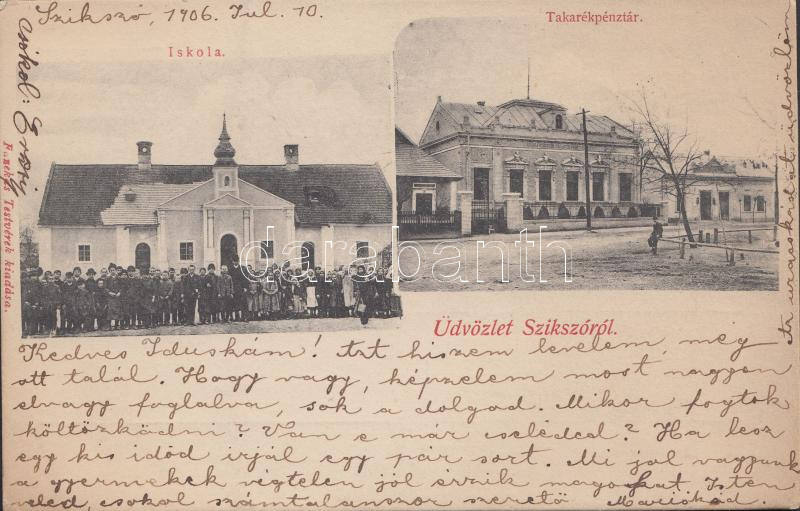 Szikszó, 1906. Jul. 10.
Takarékpénztár.
Iskola.
Fazekas Testvérek kiadása.
darabanth
Üdvözlet Szikszóról.
Kedves Iduskám! Azt hiszem levelem, még
ott talál. Hogy vagy, képzelem most nagyon
elvagy foglalva, sok a dolgod. Mikor fogtok
költözködni? Van e már cseléded? Ha lesz
egy kis időd írjál egy pár sort. Mi jól vagyunk
a gyermekek végtelen jól érzik magokat. Isten
veled, csokol számtalanszor szerető Mariskád.
csókol: Erzsi